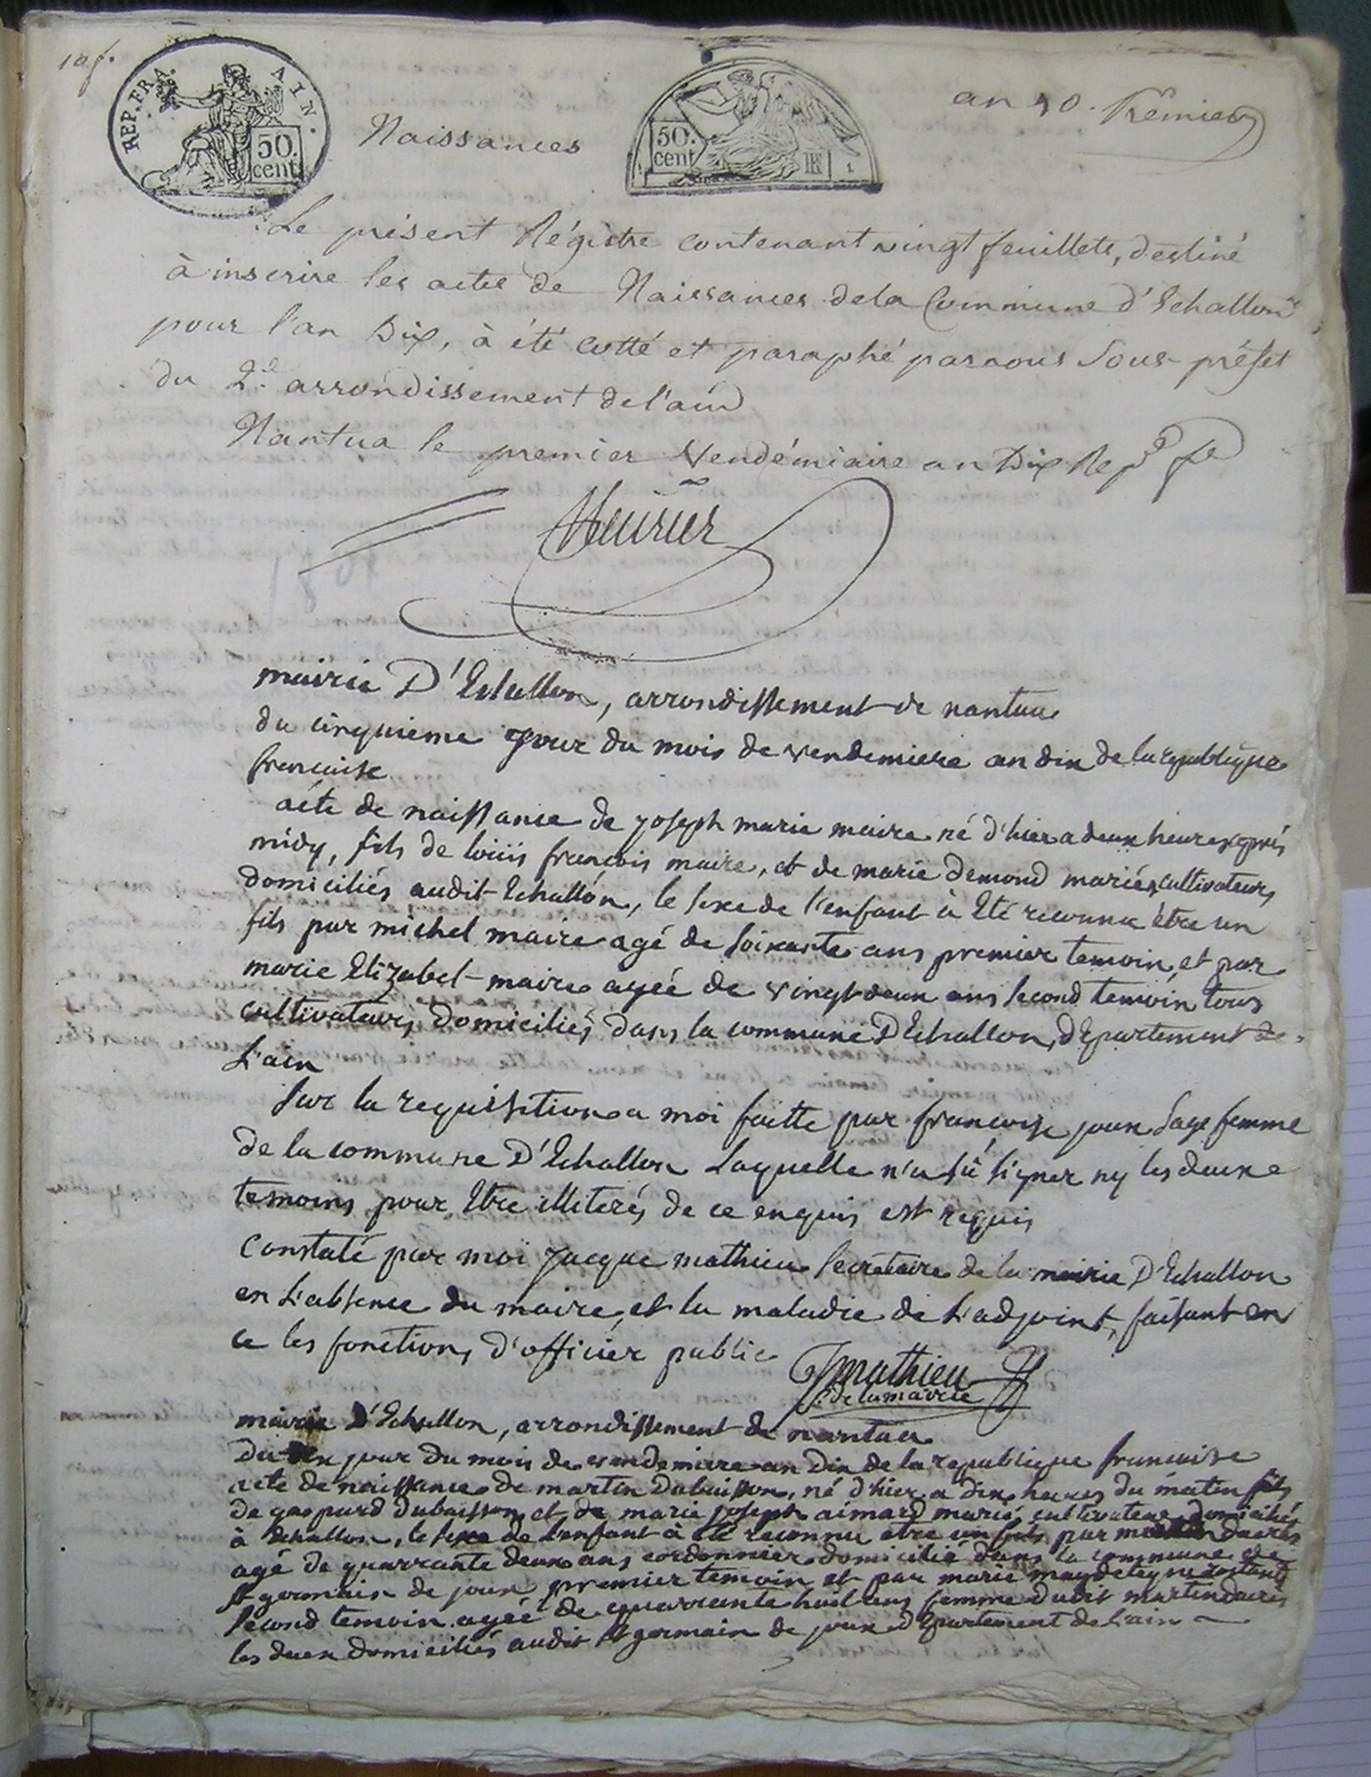 10 f.
REP. FRA. AIN.
50. cent.
Naissances
50. cent
an 10. Premier
Le présent Régistre contenant vingt feuillets, destiné
à inscrire les actes de Naissances de la Commune d'Echallon
pour l'an Dix, à été cotté et paraphé par nous Sous-préfet
du 2.d arrondissement de l'ain
Nantua le premier Vendémiaire an Dix Rep.e fe
mairie D'Echallon, arrondissement de nantua
du cinquieme jour du mois de vendemiere an dix de la republique
francaise
acte de naissance de joseph marie maire né d'hier a deux heures après
midy, fils de louis françois maire, et de marie demond mariés, cultivateurs
domiciliés audit Echallon, le sexe de l'enfant à Eté reconnu être un
fils par michel maire agé de soixante ans premier temoin, et par
marie Elizabet maire agée de vingt deux ans second temoin, tous
cultivateurs, domiciliés dans la commune D'Echallon, departement de
L'ain
Sur la requisition a moi faitte par francoise joux sage femme
de la commune D'Echallon Laquelle n'a sû signer ny les deux
temoins pour Etre illiterés de ce enquis est requis
Constaté par moi jacque mathieu secretaire de la mairie D'Echallon
en L'absence du maire, et la maladie de L'adjoint, faisant en
ce les fonctions d'officier public
J mathieu
S. de la mairie
mairie D'Echallon, arrondissement de nantua
Du jour du mois de vendemiere an Dix de la republique francaise
acte de naissance de martin Dubuisson, né d'hier a dix heures du matin fils
de gaspard dubuisson et de marie joseph aimard mariés, cultivateurs domiciliés
à Echallon, le sexe de l'enfant à été reconnu être un fils par martin
agé de quarrante deux ans cordonnier domicilié dans la commune de
st germain de joux premier temoin, et par marie
second temoin agée de quarrante huit ans femme dudit martin
les deux domiciliés audit st germain de joux departement de L'ain